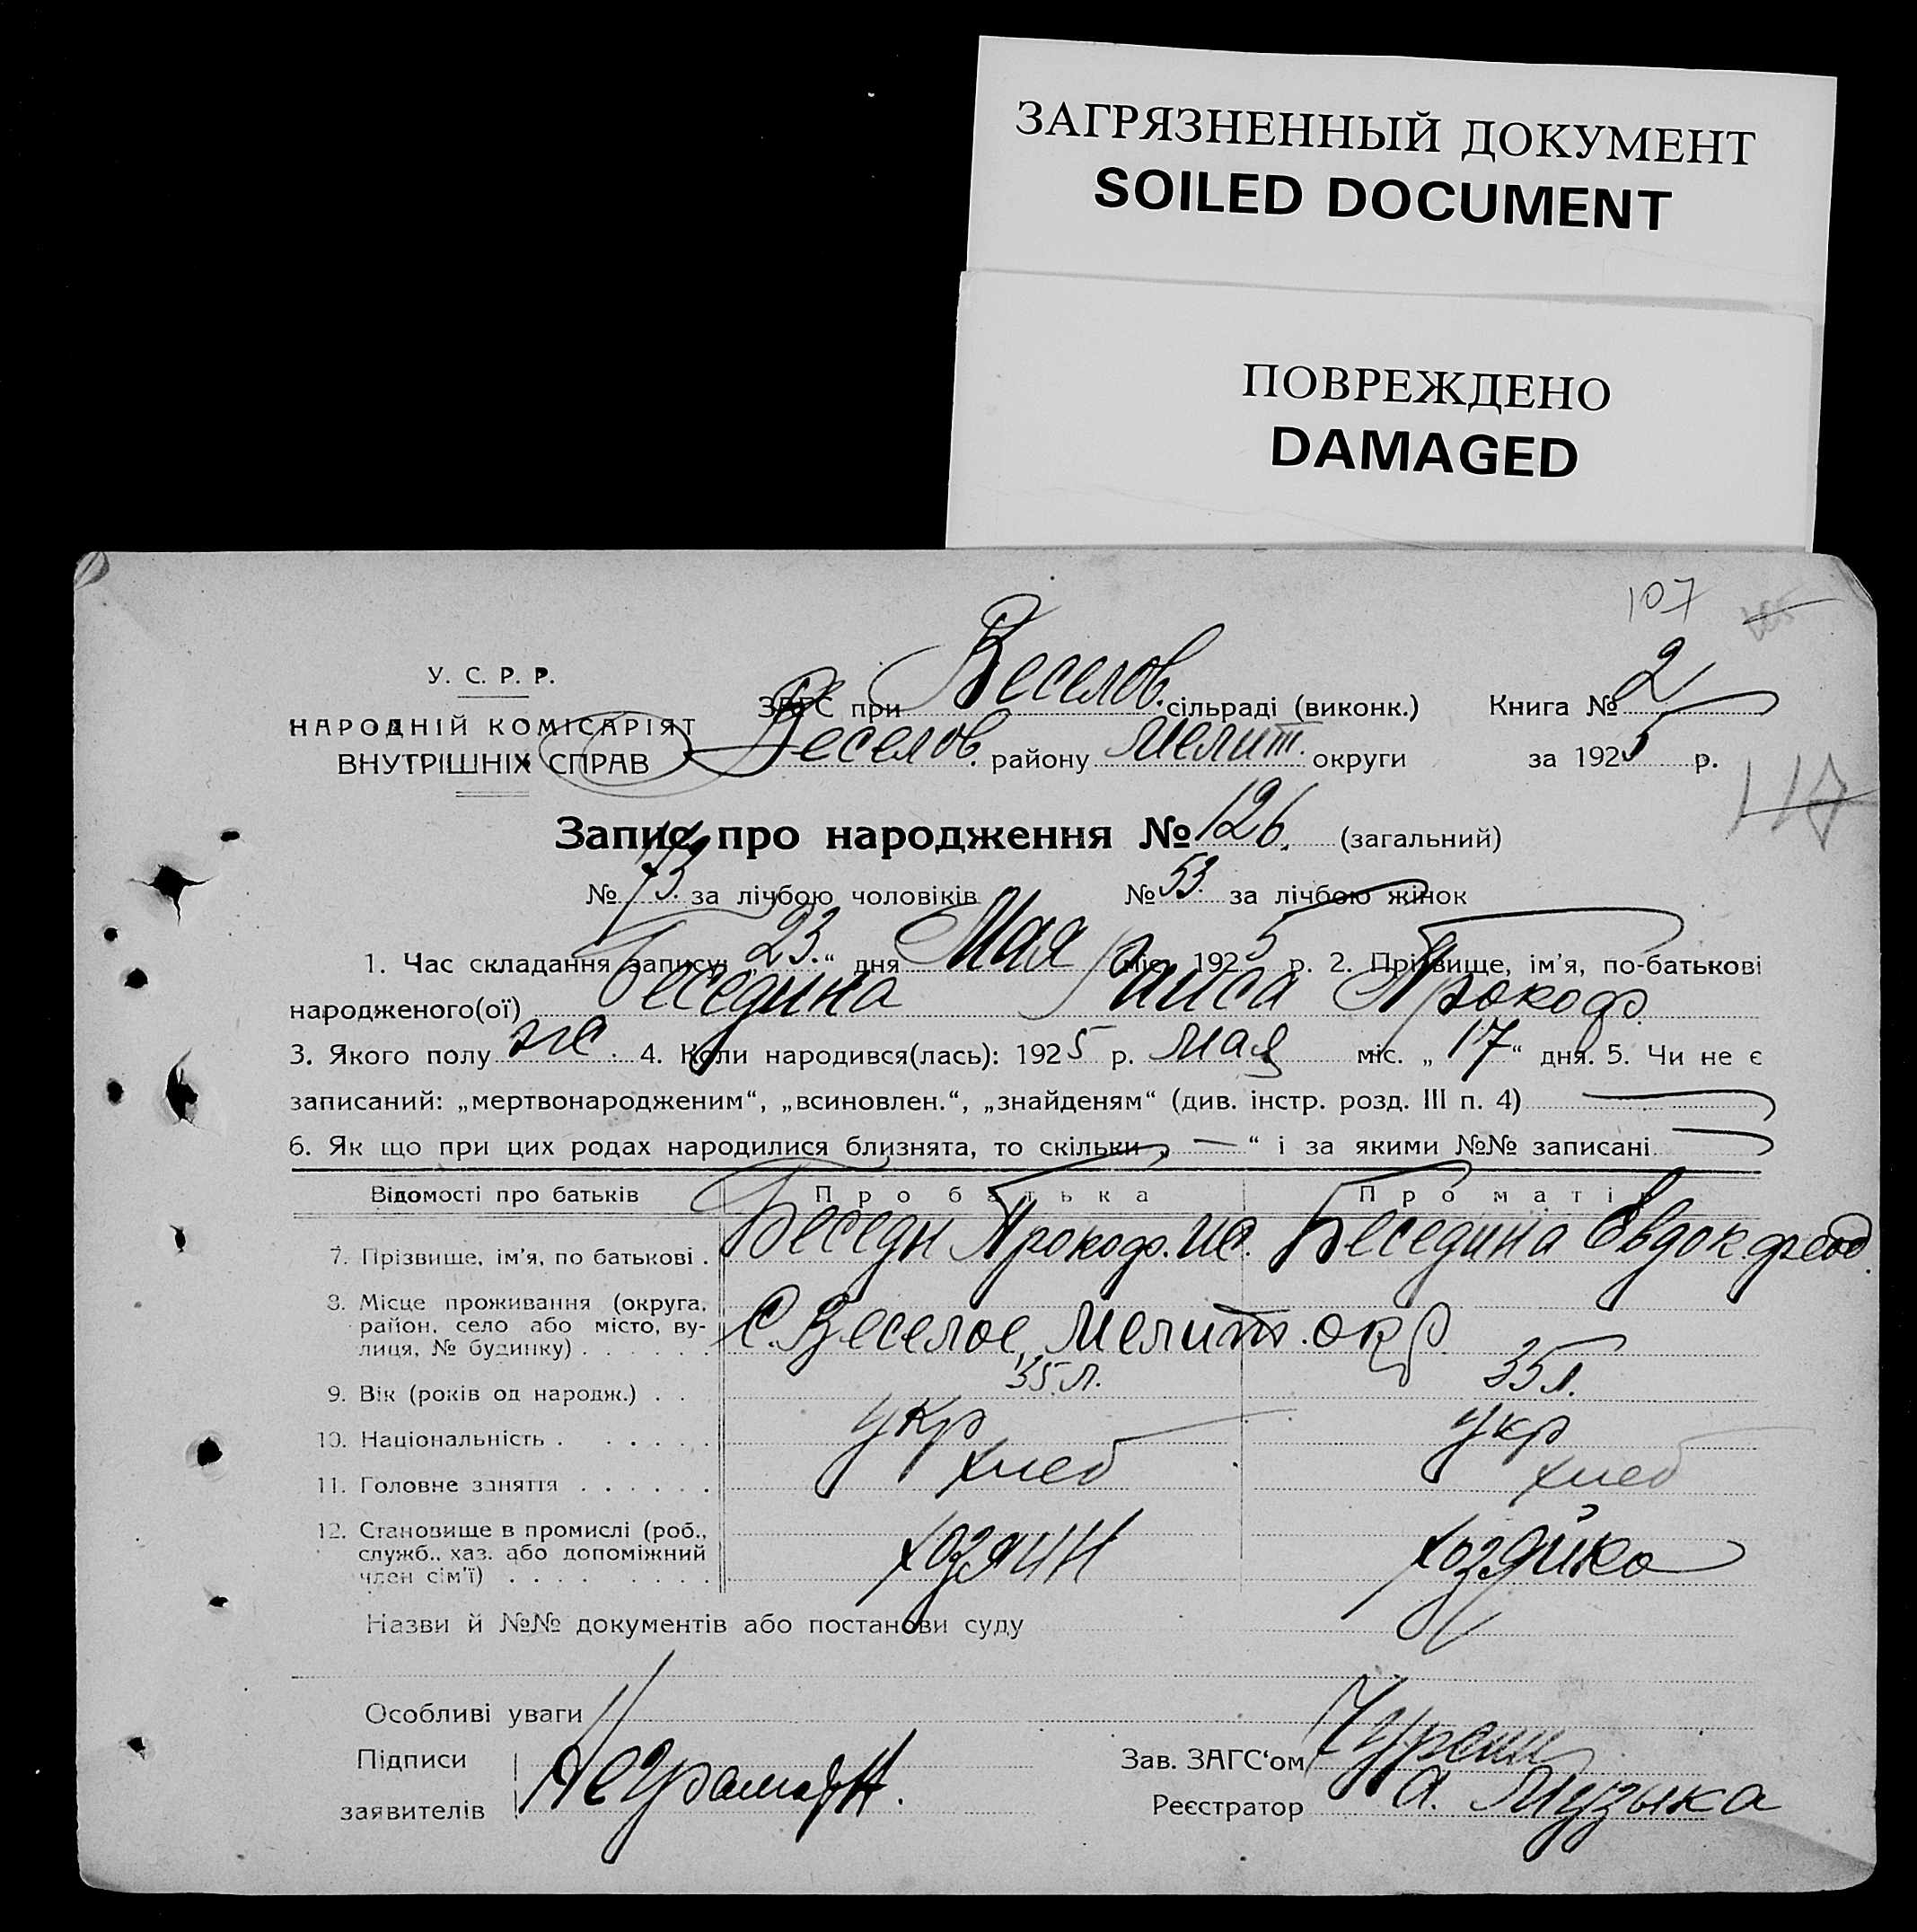 ЗАГРЯЗНЕННЫЙ ДОКУМЕНТ
SOILED DOCUMENT
ПОВРЕЖДЕНО
DAMAGED
107
У. С. Р. Р.
НАРОДНІЙ КОМІСАРІЯТ
ВНУТРІШНІХ СПРАВ
ЗАГС при Веселов. сільраді (виконк.) Книга № 2
Веселов. району Мелит. округи за 1925 р.
117
Запис про народження № 126. (загальний)
№ 73. за лічбою чоловіків № 53. за лічбою жінок
1. Час складання запису: „23.“ дня Мая міс. 1925 р. 2. Прізвище, ім’я, по-батькові
народженого(ої) Беседина Раиса Прокоф.
3. Якого полу же. 4. Коли народився(лась): 1925 р. мая міс. „17“ дня. 5. Чи не є
записаний: „мертвонародженим“, „всиновлен.“, „знайденям“ (див. інстр. розд. III п. 4)
6. Як що при цих родах народилися близнята, то скільки „—“ і за якими №№ записані
Відомості про батьків Про батька Про матір
7. Прізвище, ім’я, по батькові . Беседн Прокоф. Ив. Беседина Евдок
8. Місце проживання (округа,
район, село або місто, ву-
лиця, № будинку) . . . . . . С. Веселое Мелит. окр.
9. Вік (років од народж.) . . 35 л. 35 л.
10. Національність . . . . . . укр укр
11. Головне заняття . . . . . . хлеб хлеб
12. Становище в промислі (роб.,
служб., хаз. або допоміжний
член сім’ї) . . . . . . . . хозяин хозяйка
Назви й №№ документів або постанови суду
Особливі уваги
Підписи
заявителів
Зав. ЗАГС‘ом
Реєстратор А. Музыка